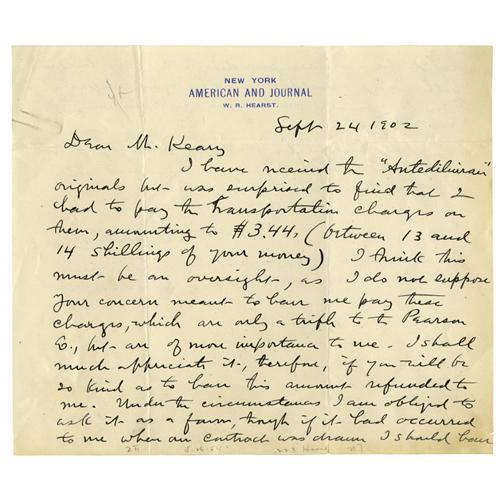 NEW YORK
AMERICAN AND JOURNAL
W. R. HEARST.
Sept 24 1902
Dear Mr. Keary
I have received the "Antediluvian"
originals but was surprised to find that I
had to pay the transportation charges on
them, amounting to $3.44, (between 13 and
14 shillings of your money) I think this
must be an oversight, as I do not suppose
your concern meant to have me pay these
charges, which are only a trifle to the Pearson
Co., but are of more importance to me. I shall
much appreciate it, therefore, if you will be
so kind as to have this amount refunded to
me. Under the circumstances I am obliged to
ask it as a favor, though if it had occurred
to me when our contract was drawn I should have